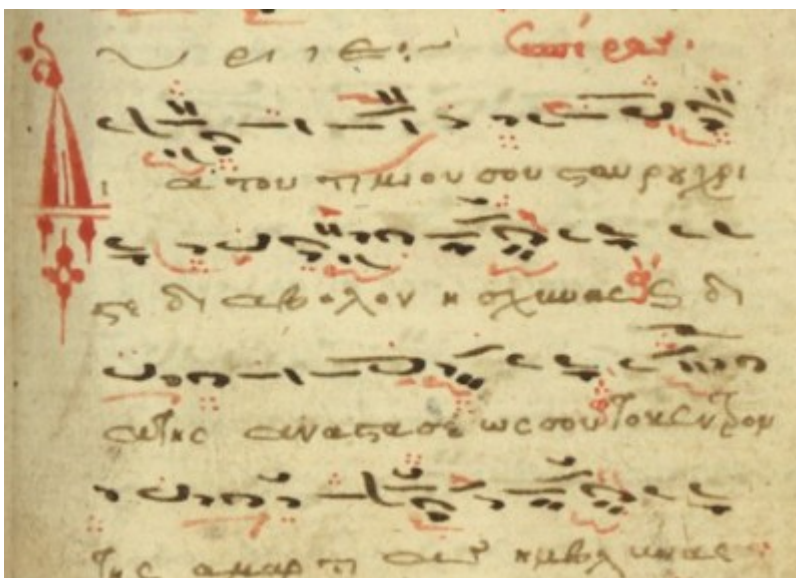 Δι α του τι μι ου σου ϛαυ ρου χρι
ϛε δι αβο λον η σχυνας ϗ δι
α της ανα ϛα σε ως σου το κεν τρον
της αμαρ τι ας ημβλ υνας